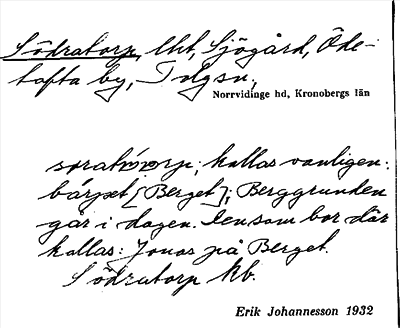 Södratorp, lht, Sjögård, Öde-
tofta by, Tolgsn.,
Norrvidinge hd, Kronobergs län
kallas vanligen:
bärjet [Berget]; Berggrunden
går i dagen. Den som bor där
kallas: Jonas på Berget.
Södratorp kb.
Erik Johannesson 1932